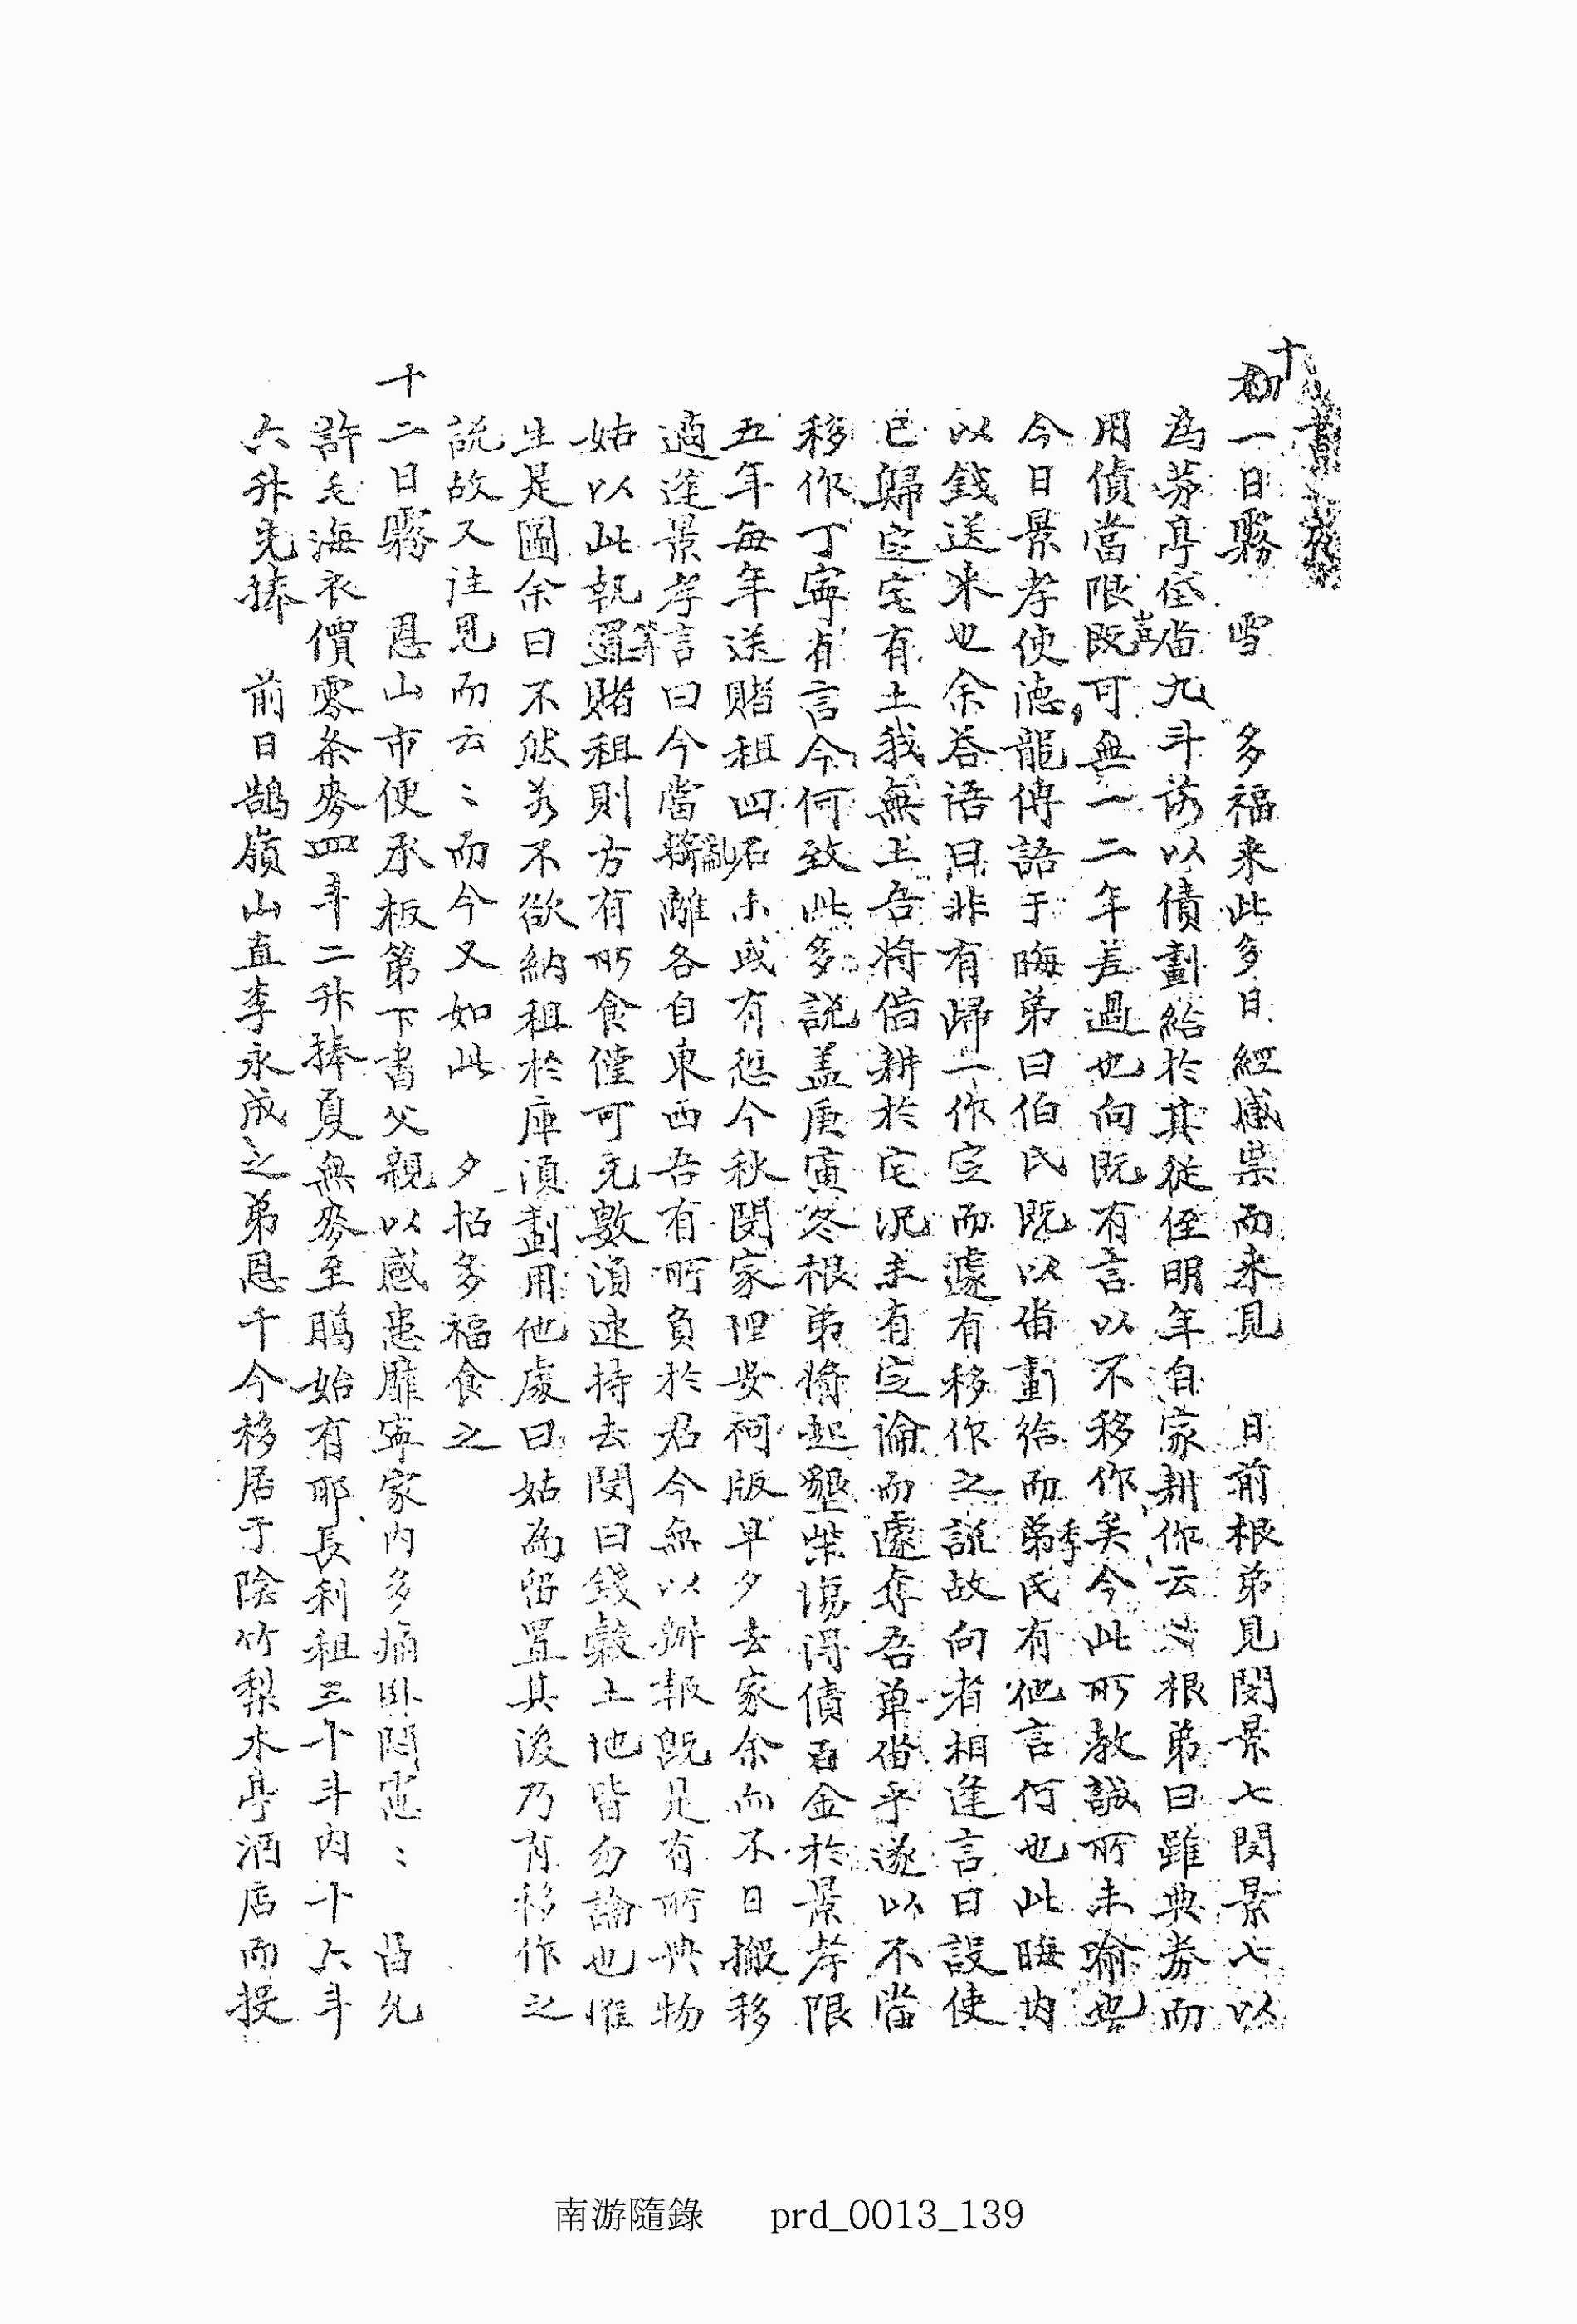 十一日霧 雪 多福来此多日經感祟而来見 日前根弟見閔景七閔景七以
為茅亭侄畓九斗落以債劃給於其從侄明年自家耕作云 根弟曰雖典券而
用債當限既可無一二年差過也向既有言以不移作矣今此所教誠所未喻也
今日景孝使德龍傳語于晦弟曰伯氏既以畓劃給而季氏有他言何也此晦內
以錢送来也余答語曰非有歸一作定而遽有移作之說故向者相逢言曰設使
已歸定宅有土我無土吾將借耕於宅况未有定論而遽奪吾單畓乎遂以不當
移作丁寧有言今何致此多說盖庚寅冬根弟将起墾柴場得債百金於景孝限
五年每年送賭租四石未或有愆今秋閔家裡安祠版早夕去家余而不日搬移
適逢景孝言曰今當亂離各自東西吾有所負於君今無以辦報既是有所典物
姑以此執籌賭租則方有所食僅可充數湏速持去閔曰錢穀土地皆勿論也惟
生是圖余曰不然若不欲納租於庫湏劃用他處曰姑為留置其後乃有移作之
說故又往見而云〻而今又如此 夕招多福食之
十二日霧 恩山市便承板第下書父親以感患靡寧家內多痛卧悶憲〻 畓允
許毛海衣價零条麥四斗二升捧夏無麥至臈始有耶長利租三十斗內十六斗
六升先捧 前日鵲嶺山直李永成之弟恩千今移居于陰竹梨木亭酒店而捉
南游隨錄 prd_0013_139